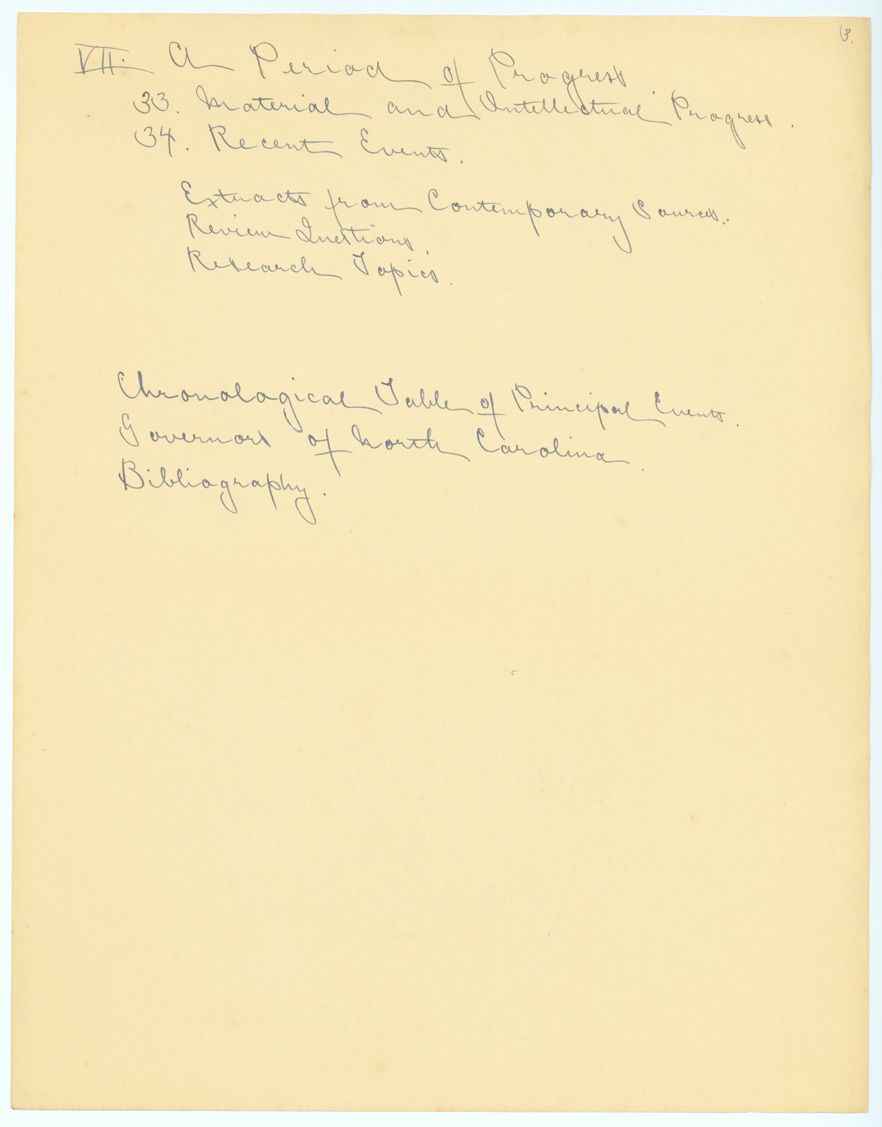 3.
VII. A Period of Progress
33. Material and Intellectual Progress.
34. Recent Events.
Extracts from Contemporary Sources.
Review Questions.
Research Topics.
Chronological Table of Principal Events.
Governors of North Carolina.
Bibliography.